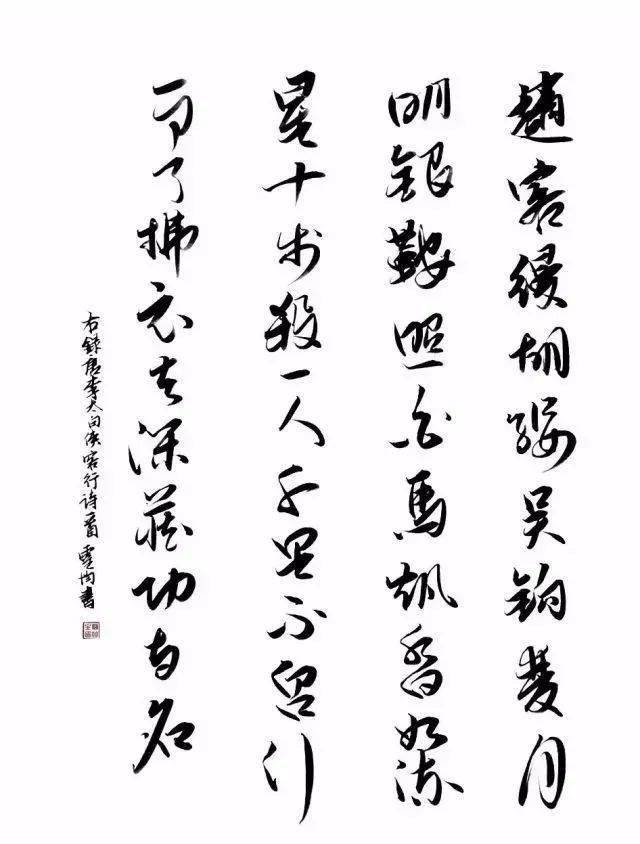 趙客縵胡纓吳鈎月
明銀鞍照白馬颯沓如流
星十步殺一人千里不留行
事了拂衣去深藏功与名
右錄唐李太白俠客行詩一首書